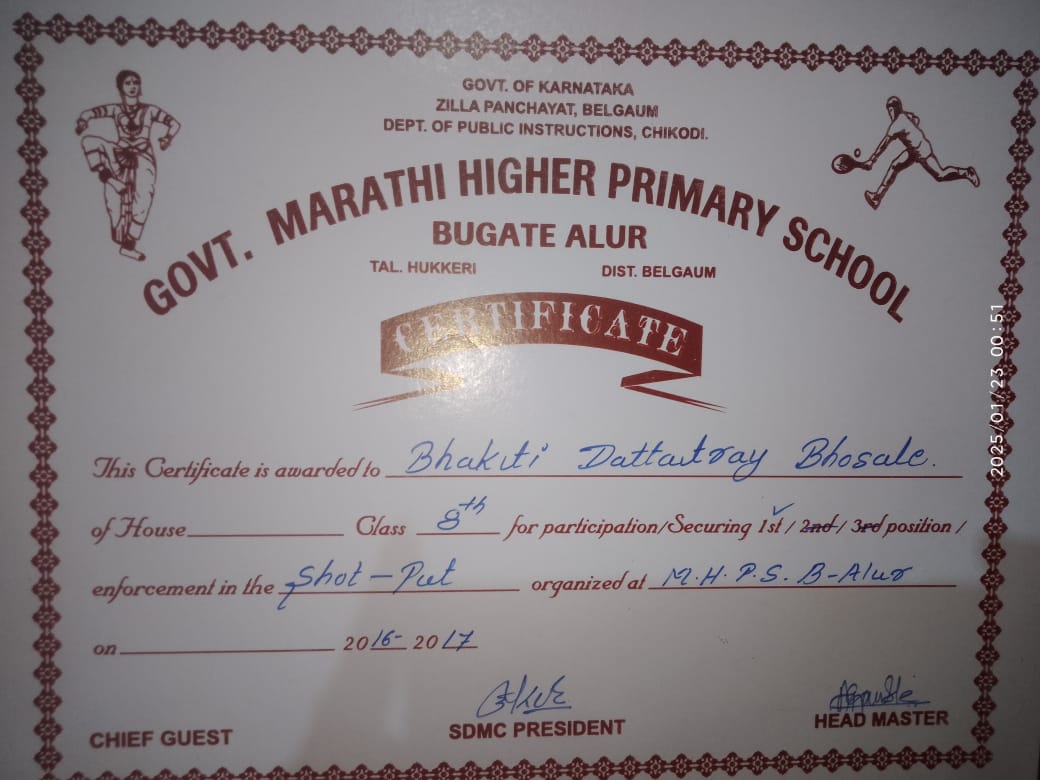 GOVT. OF KARNATAKA
ZILLA PANCHAYAT, BELGAUM
DEPT. OF PUBLIC INSTRUCTIONS, CHIKODI.
GOVT. MARATHI HIGHER PRIMARY SCHOOL
BUGATE ALUR
TAL. HUKKERI DIST. BELGAUM
CERTIFICATE
This Certificate is awarded to Bhakiti Dattatray Bhosale.
of House Class 8th for participation/Securing 1st ✓ / 2nd / 3rd position /
enforcement in the Shot-Put organized at M.H.P.S. B-Alur
on 2016- 2017
CHIEF GUEST SDMC PRESIDENT HEAD MASTER
2025/01/23 00:51